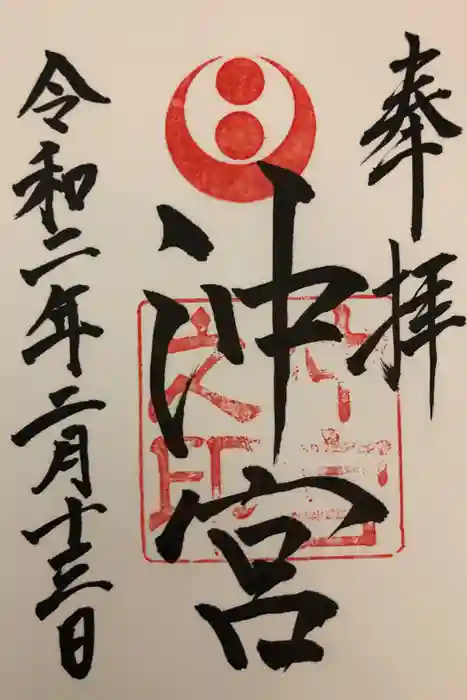 奉拝
沖宮
令和二年二月十三日